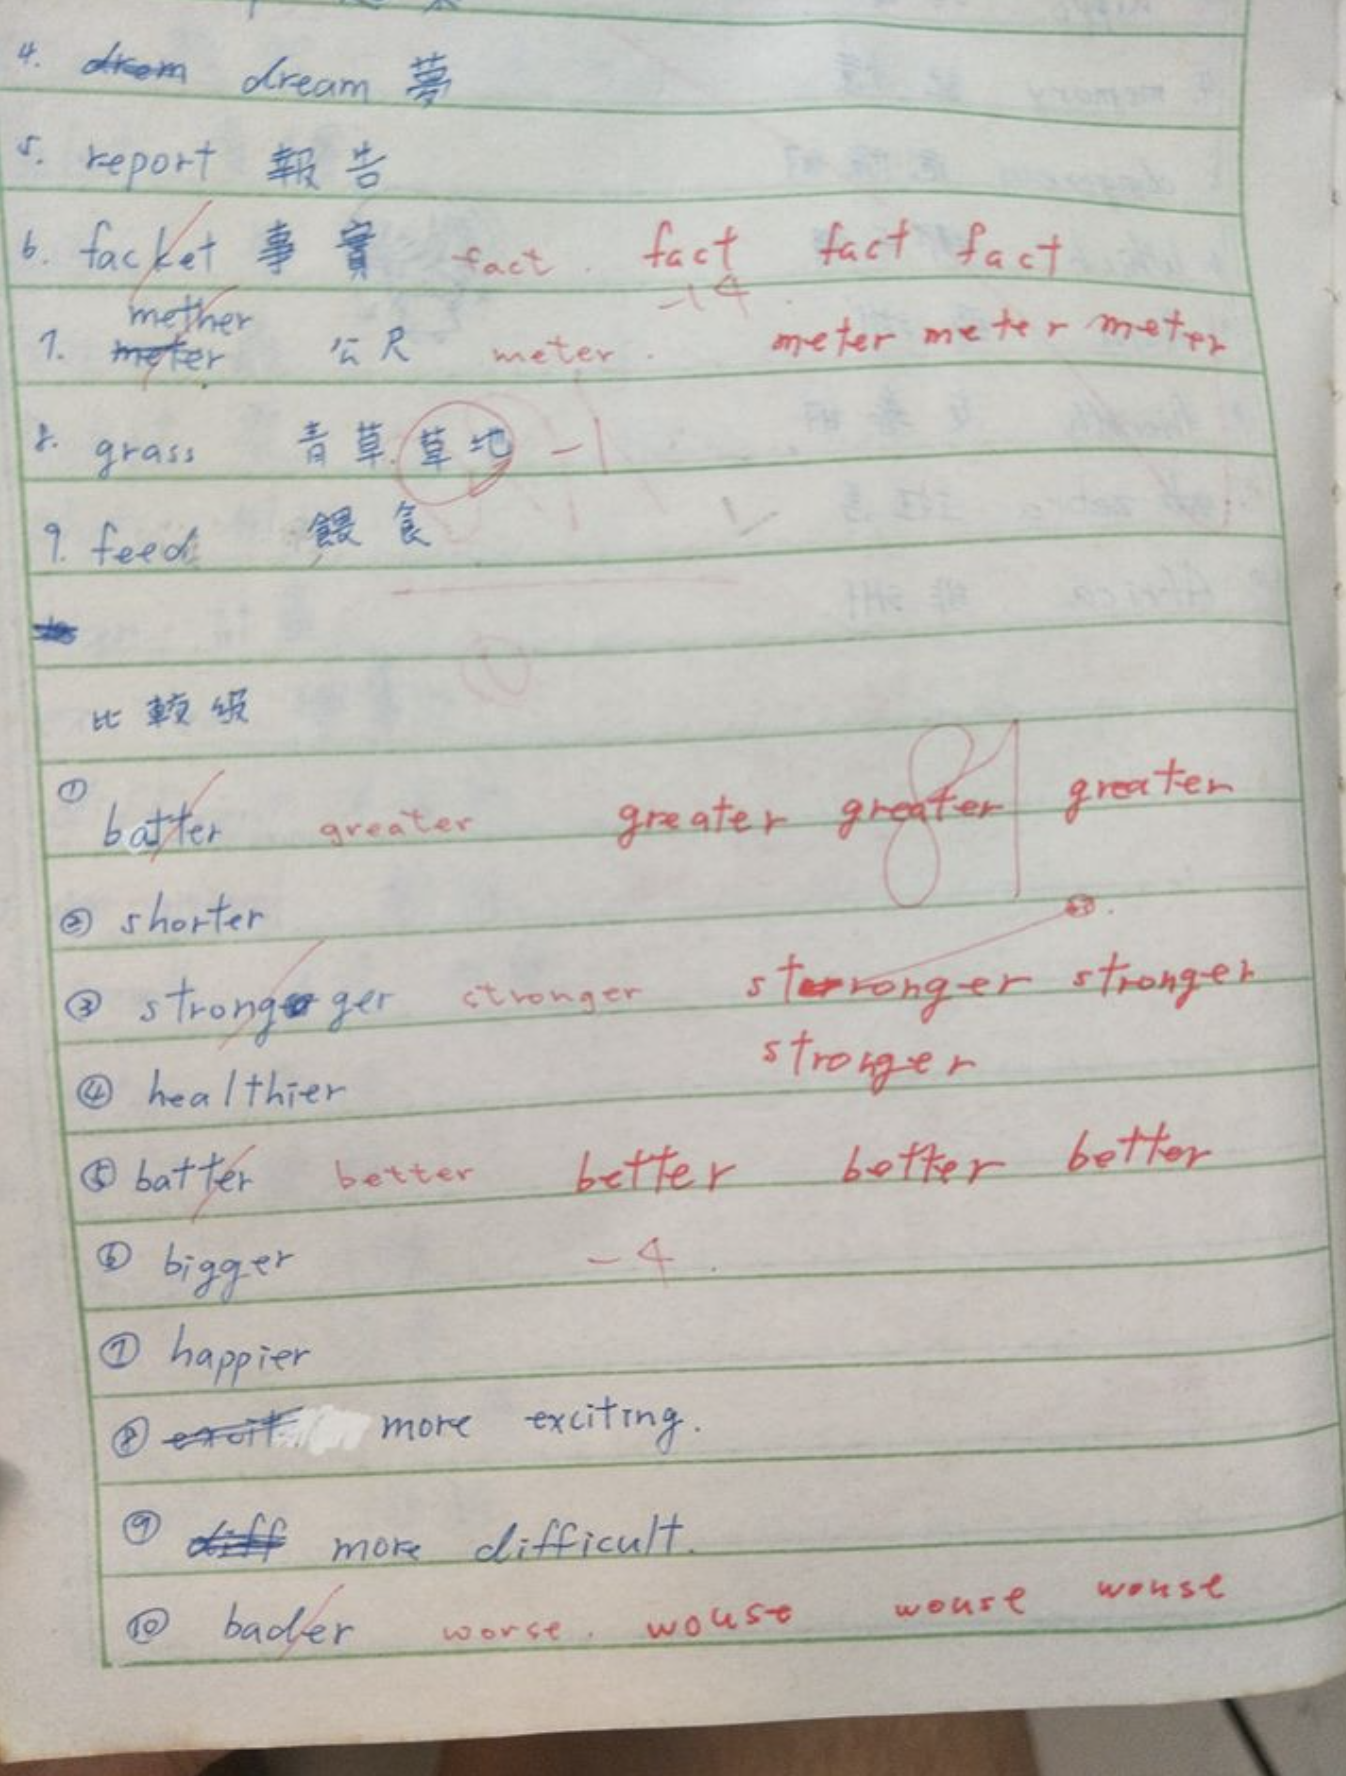 4. drem dream 夢
5. report 報告
6. facket 事實 fact. fact fact fact
-14
mether
7. meter 公尺 meter. meter meter meter
8. grass 青草 草地 -1
9. feed 餵食
比較級
81
① batter greater greater greater greater
② shorter
③ strongger stronger stronger stronger
stronger
④ healthier
⑤ batter better better better better
⑥ bigger -4
⑦ happier
⑧ excit more exciting.
⑨ diff more difficult.
⑩ bader worse. wouse wouse wouse